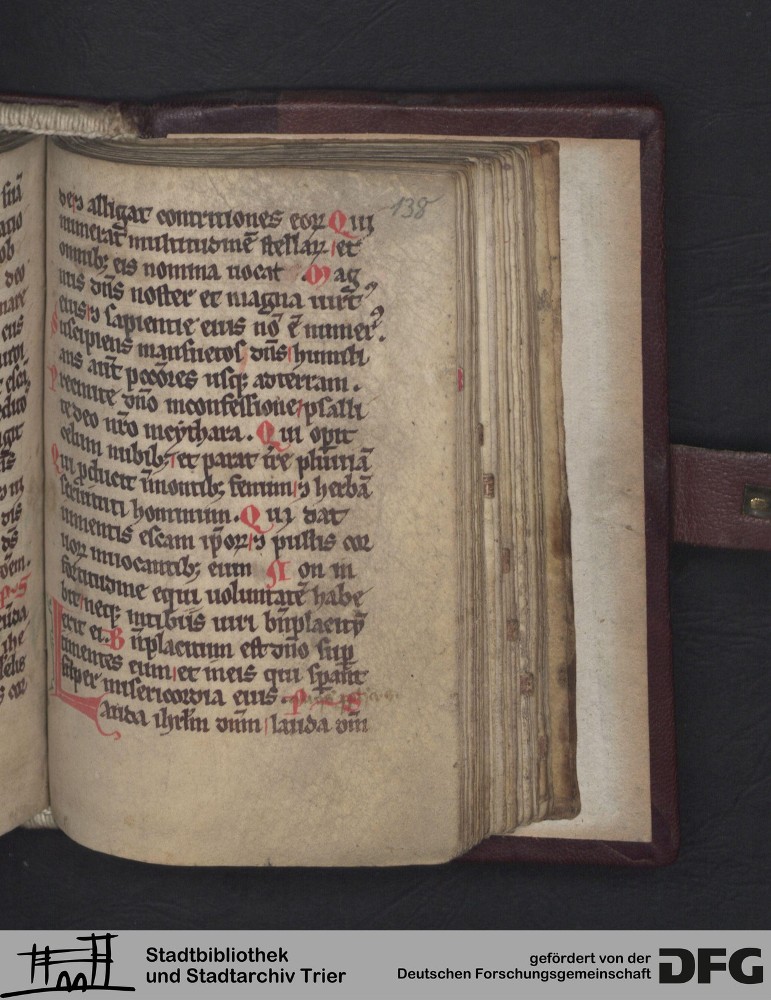 138
de⁊ alligat contritiones eoꝝ Qui
numerat multitudinē stellaꝝ et
omnibꝫ eis nomina uocat Mag
nus dn̄s noster et magna uirtꝰ
eius ⁊ sapientie eius nō ē numerꝰ.
Suscipiens mansuetos dn̄s humili
ans aūt pccōres usqꝫ adterram.
Precinite dn̄o inconfessione psalli
te deo nr̄o incythara. Qui opit
celum nubibꝫ et parat t̄re pluuiā
Qui ꝓducit īmontibꝫ fenum ⁊ herbā
seruituti hominum. Qui dat
iumentis escam ip̄oꝝ ⁊ pullis cor
uoꝝ inuocantibꝫ eum Non in
fortitudine equi uoluntatē habe
bit neqꝫ intibiis uiri bn̄placitū
erit ei. Bn̄placitum est dn̄o suꝑ
timentes eum et ineis qui sꝑant
suꝑ misericordia eius. PS
Lauda ihrl̄m dnm̄ lauda dm̄
Stadtbibliothek
und Stadtarchiv Trier
gefördert von der
Deutschen Forschungsgemeinschaft
DFG